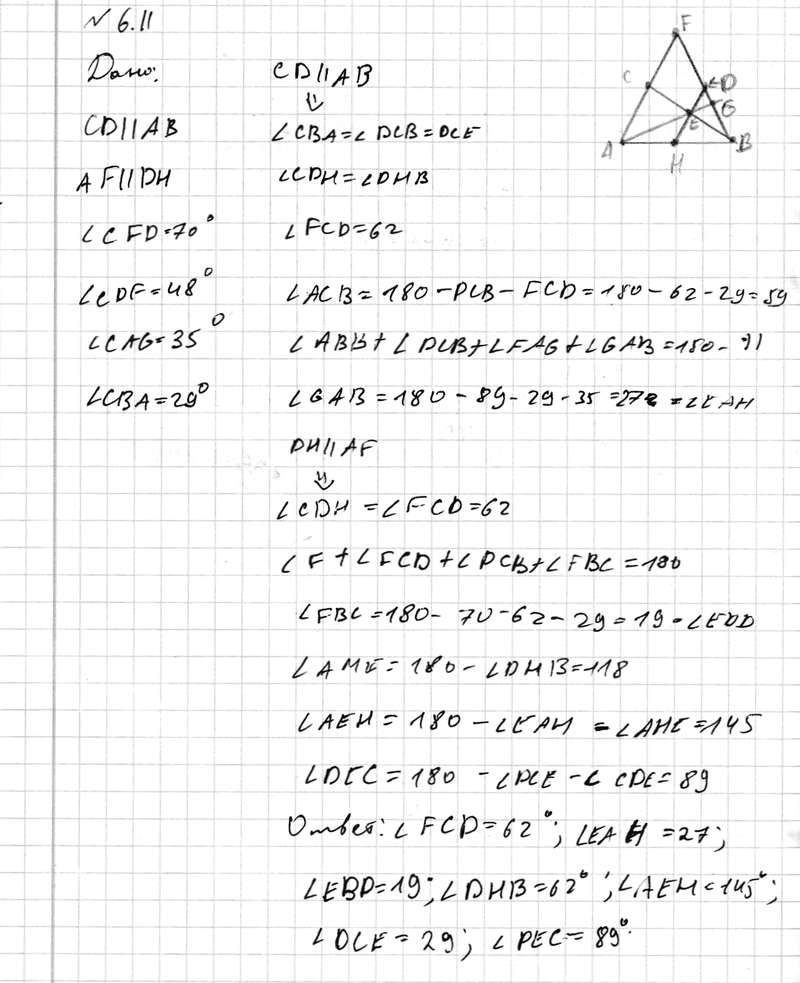 № 6.11
Дано:
CD||AB
AF||DH
∠CFD=70°
∠CDF=48°
∠CAG=35°
∠CBA=29°
CD||AB
⇓
∠CBA=∠DCB=DCE
∠CDH=∠DHB
∠FCD=62
∠ACB=180-DCB-FCD=180-62-29=89
∠ABB+∠DCB+∠FAG+∠GAB=180-
∠GAB=180-89-29-35=27=∠EAH
DH||AF
⇓
∠CDH=∠FCD=62
∠F+∠FCD+∠DCB+∠FBC=180
∠FBC=180-70-62-29=19=
∠AME=180-∠DHB=118
∠AEH=180-∠EAH-∠AHE=145
∠DEC=180-∠DCE-∠CDE=89
Ответ:∠FCD=62°; ∠EAH=27;
∠EBD=19; ∠DHB=62°; ∠AEH=145°;
∠DCE=29; ∠DEC=89°.
F
C
D
G
E
A
H
B